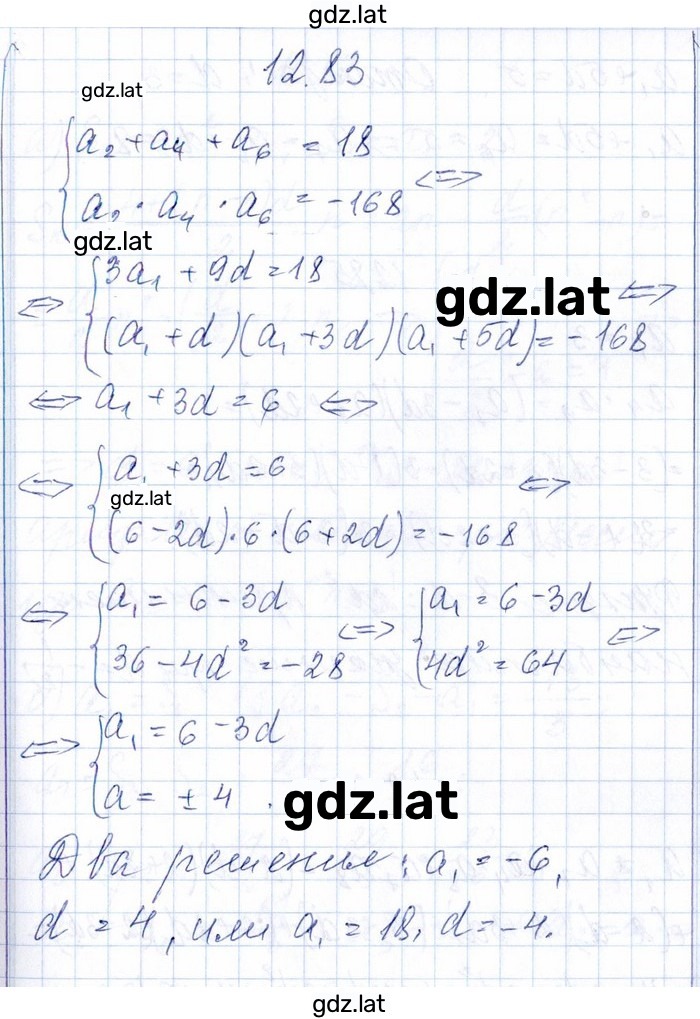 gdz.lat
12.83
gdz.lat
a₂ + a₄ + a₆ = 18
a₂ · a₄ · a₆ = -168 <=>
gdz.lat
3a₁ + 9d = 18
gdz.lat
<=> (a₁ + d)(a₁ + 3d)(a₁ + 5d) = -168 <=>
<=> a₁ + 3d = 6 <=>
<=> a₁ + 3d = 6 <=>
gdz.lat
(6 - 2d) · 6 · (6 + 2d) = -168
<=> a₁ = 6 - 3d <=> a₁ = 6 - 3d <=>
36 - 4d² = -28 4d² = 64
<=> a₁ = 6 - 3d
a = ± 4 .
gdz.lat
Два решения: a₁ = -6,
d = 4, или a₁ = 18, d = -4.
gdz.lat